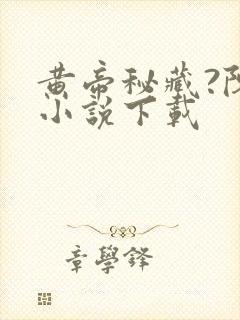 黄帝秘藏?
小說下載
章學鋒